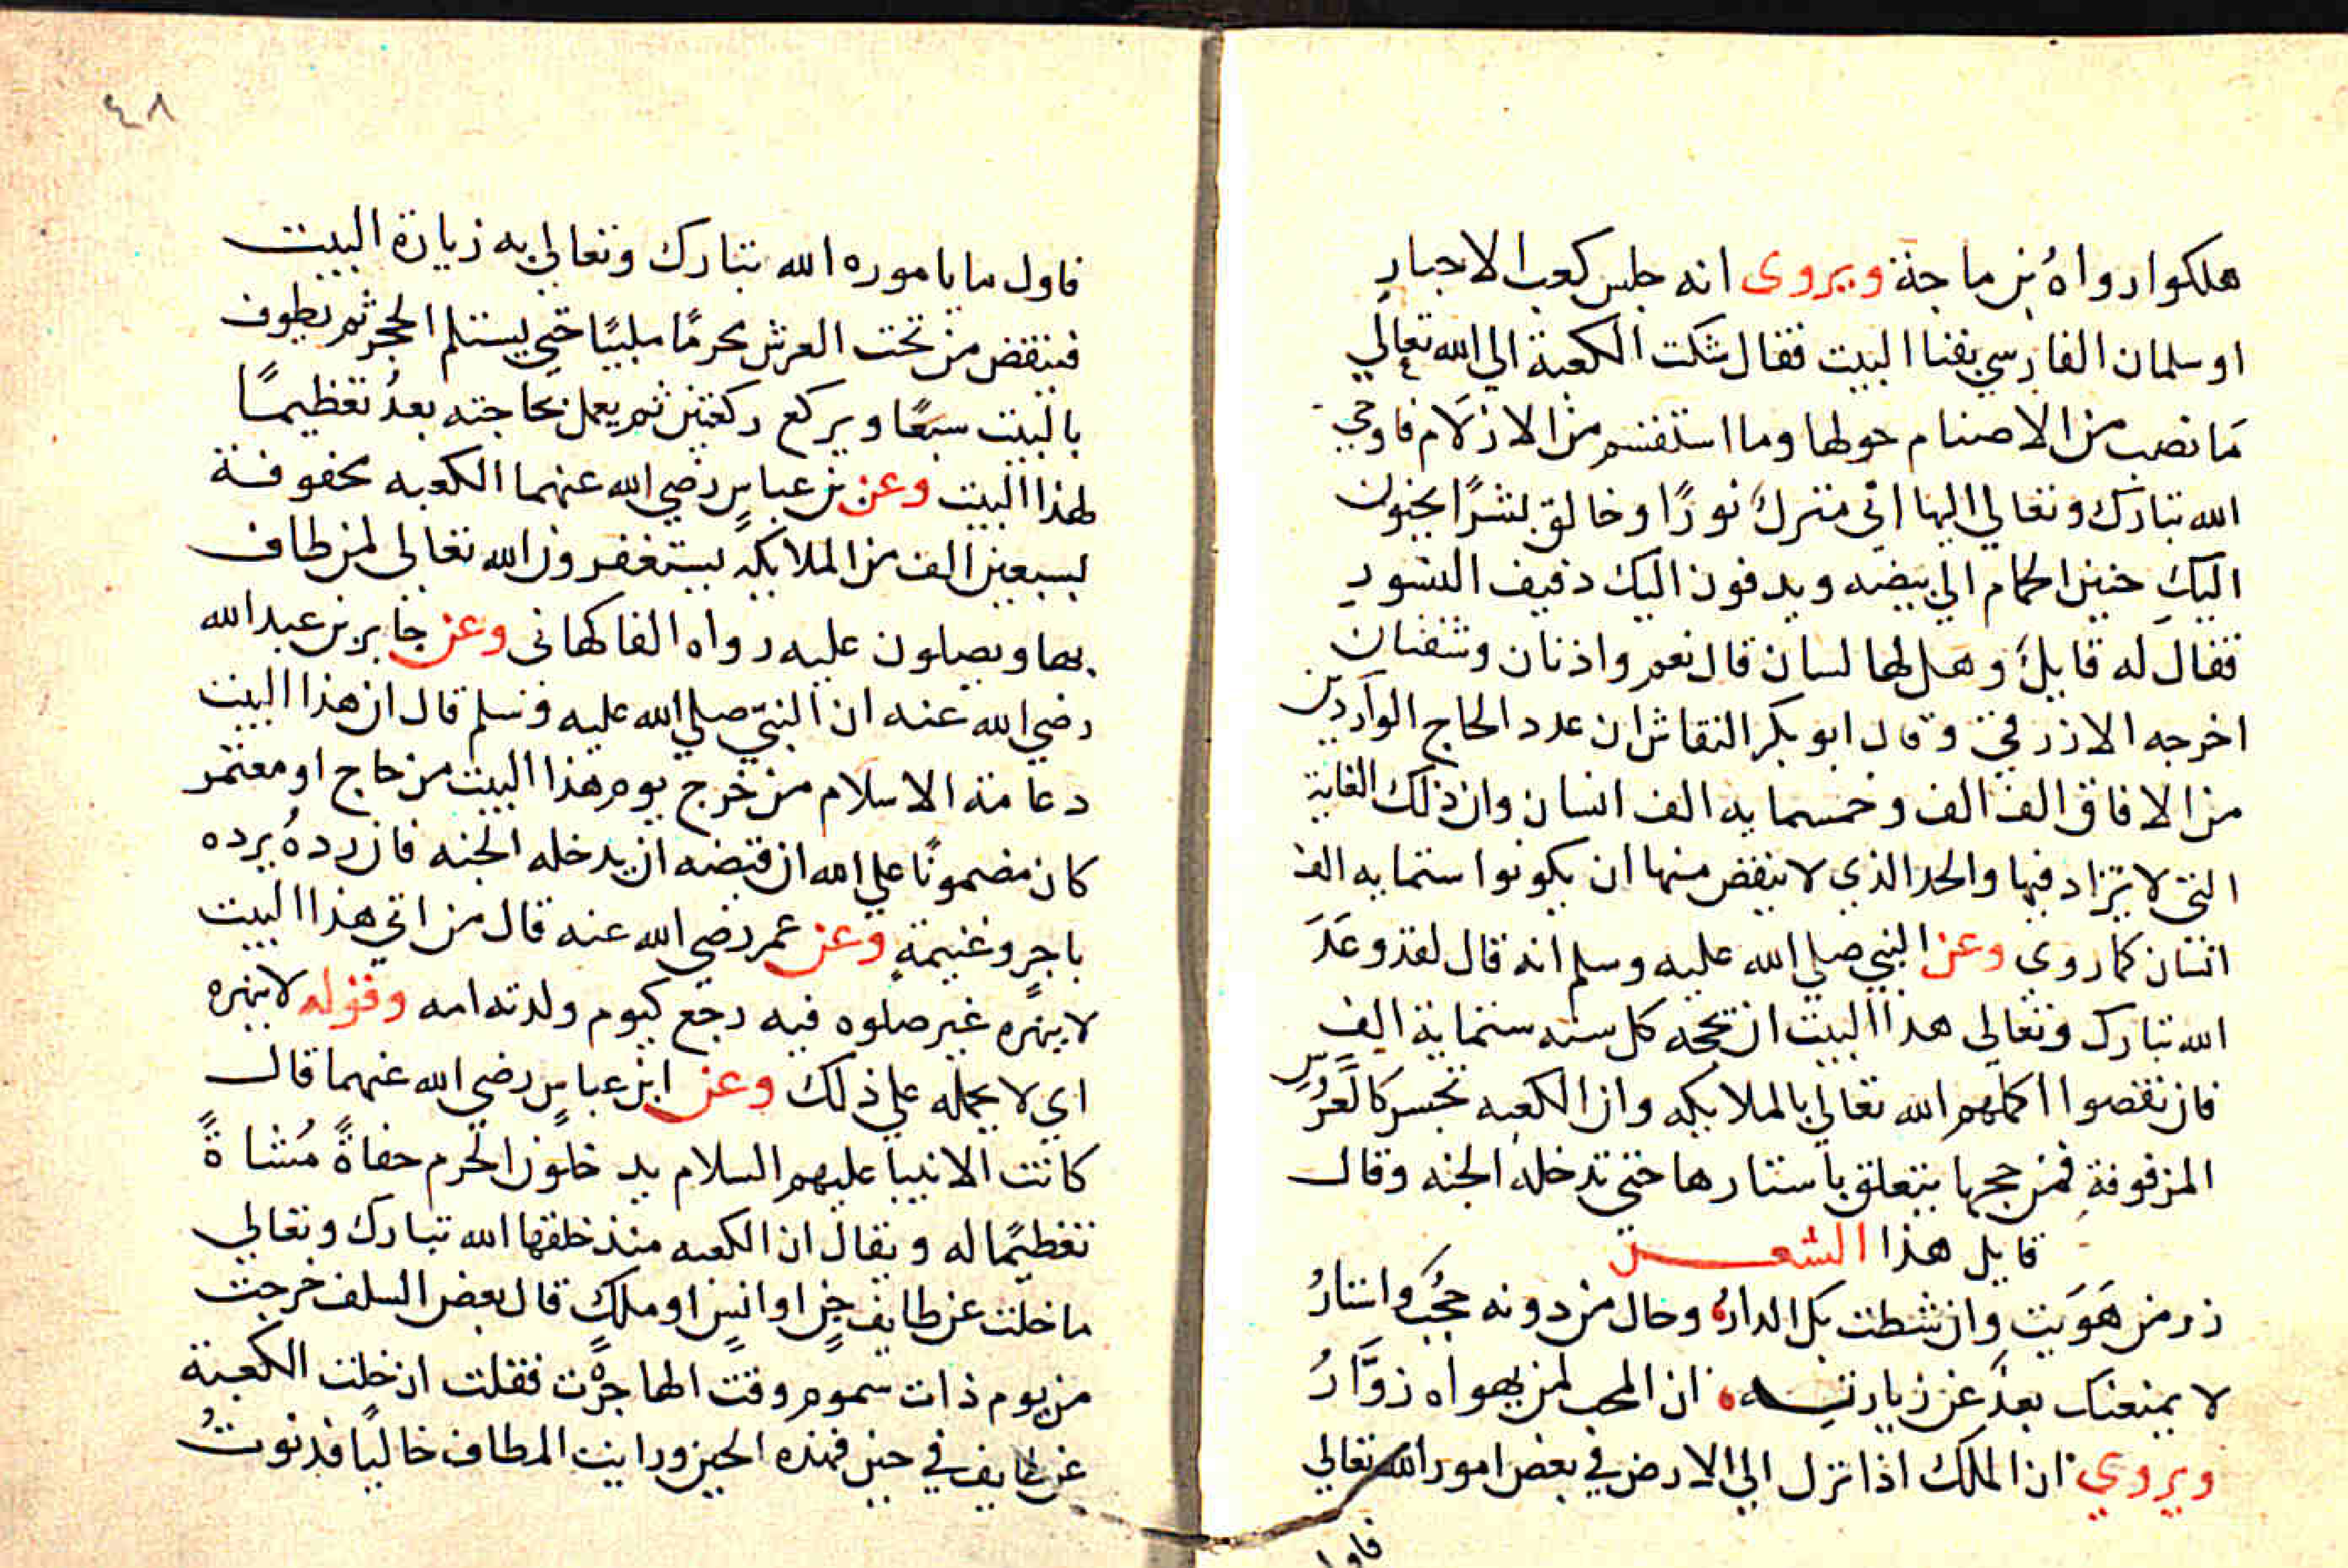 هلكوا رواهُ بن ماجة ويروى انه جلس كعب الاحبار
او سلمان الفارسي بفنا البيت فقال شكت الكعبة الي الله تعالي
مَا نصب من الاصنام حولها وما استقسم من الازلام فاوحي
الله تبارك وتعالي اليها اني منزلٌ نورًا وخالق بشرًا يحنون
اليكِ حنين الحمام الي بيضه ويدفون اليك دفيف النسور
فقال له قايلٌ وهل لها لسان قال نعم واذنان وشفتان
اخرجه الازرقي وقال ابو بكر النقاش ان عدد الحاج الواردين
من الافاق الف الف وخمسمايه الف انسان وان ذلك الغاية
التي لا يزاد فيها والحد الذي لا ينقض منها ان يكونوا ستمايه الف
انسان كما روي وعن النبي صلي الله عليه وسلم انه قال لقد وعَدَ
الله تبارك وتعالي هذا البيت ان يحجه كل سنه ستماية الف
فان نقصوا اكملهم الله تعالي بالملايكه وان الكعبه تحشر كالعَرُوسِ
المزفوفةِ فمن حجها يتعلق باستارها حتي تدخله الجنه وقال
قايل هذا الشعر
زر من هَوَيت وان شطت بكل الدار وحال من دونه حُجُبٌ واستارُ
لا يمنعنك بعدٌ عن زيارته ان المحب لمن يهواه زوَّارُ
ويروي ان الملك اذا نزل الي الارض في بعض امور الله تعالي
فاول
٤٨
فاول ما ياموره الله تبارك وتعالي به زيارة البيت
فينقض من تحت العرش محرمًا ملبيًا حتي يستلم الحجر ثم يطوف
بالبيت سبعًا ويركع ركعتين ثم يعمل بحاجته بعدُ تعظيمًا
لهذا البيت وعن بن عباسٍ رضي الله عنهما الكعبه محفوفة
بسبعين الف من الملايكه يستغفرون الله تعالي لمن طاف
بها ويصلون عليه رواه الفاكهاني وعن جابر بن عبد الله
رضي الله عنه ان النبي صلي الله عليه وسلم قال ان هذا البيت
دعامة الاسلام من خرج يوم هذا البيت من حاج او معتمر
كان مضمونًا علي الله ان قبضه ان يدخله الجنه فان ردهُ يرده
باجرٍ وغنيمةٍ وعن عمر رضي الله عنه قال من اتي هذا البيت
لا ينهزه غير صلوه فيه رجع كيوم ولدته امه وقوله لا ينهزه
اي لا يحمله علي ذلك وعن ابن عباسٍ رضي الله عنهما قال
كانت الانبيا عليهم السلام يدخلون الحرم حفاةً مُشاةً
تعظيمًا له ويقال ان الكعبه منذ خلقها الله تبارك وتعالي
ما خلت عن طايف جنٍ او انسٍ او ملكٍ قال بعض السلف خرجت
من يوم ذات سموم وقت الهاجرة فقلت ان خلت الكعبة
عن طايف في حين فهذه الحين ورايت المطاف خاليًا فدنوتُ